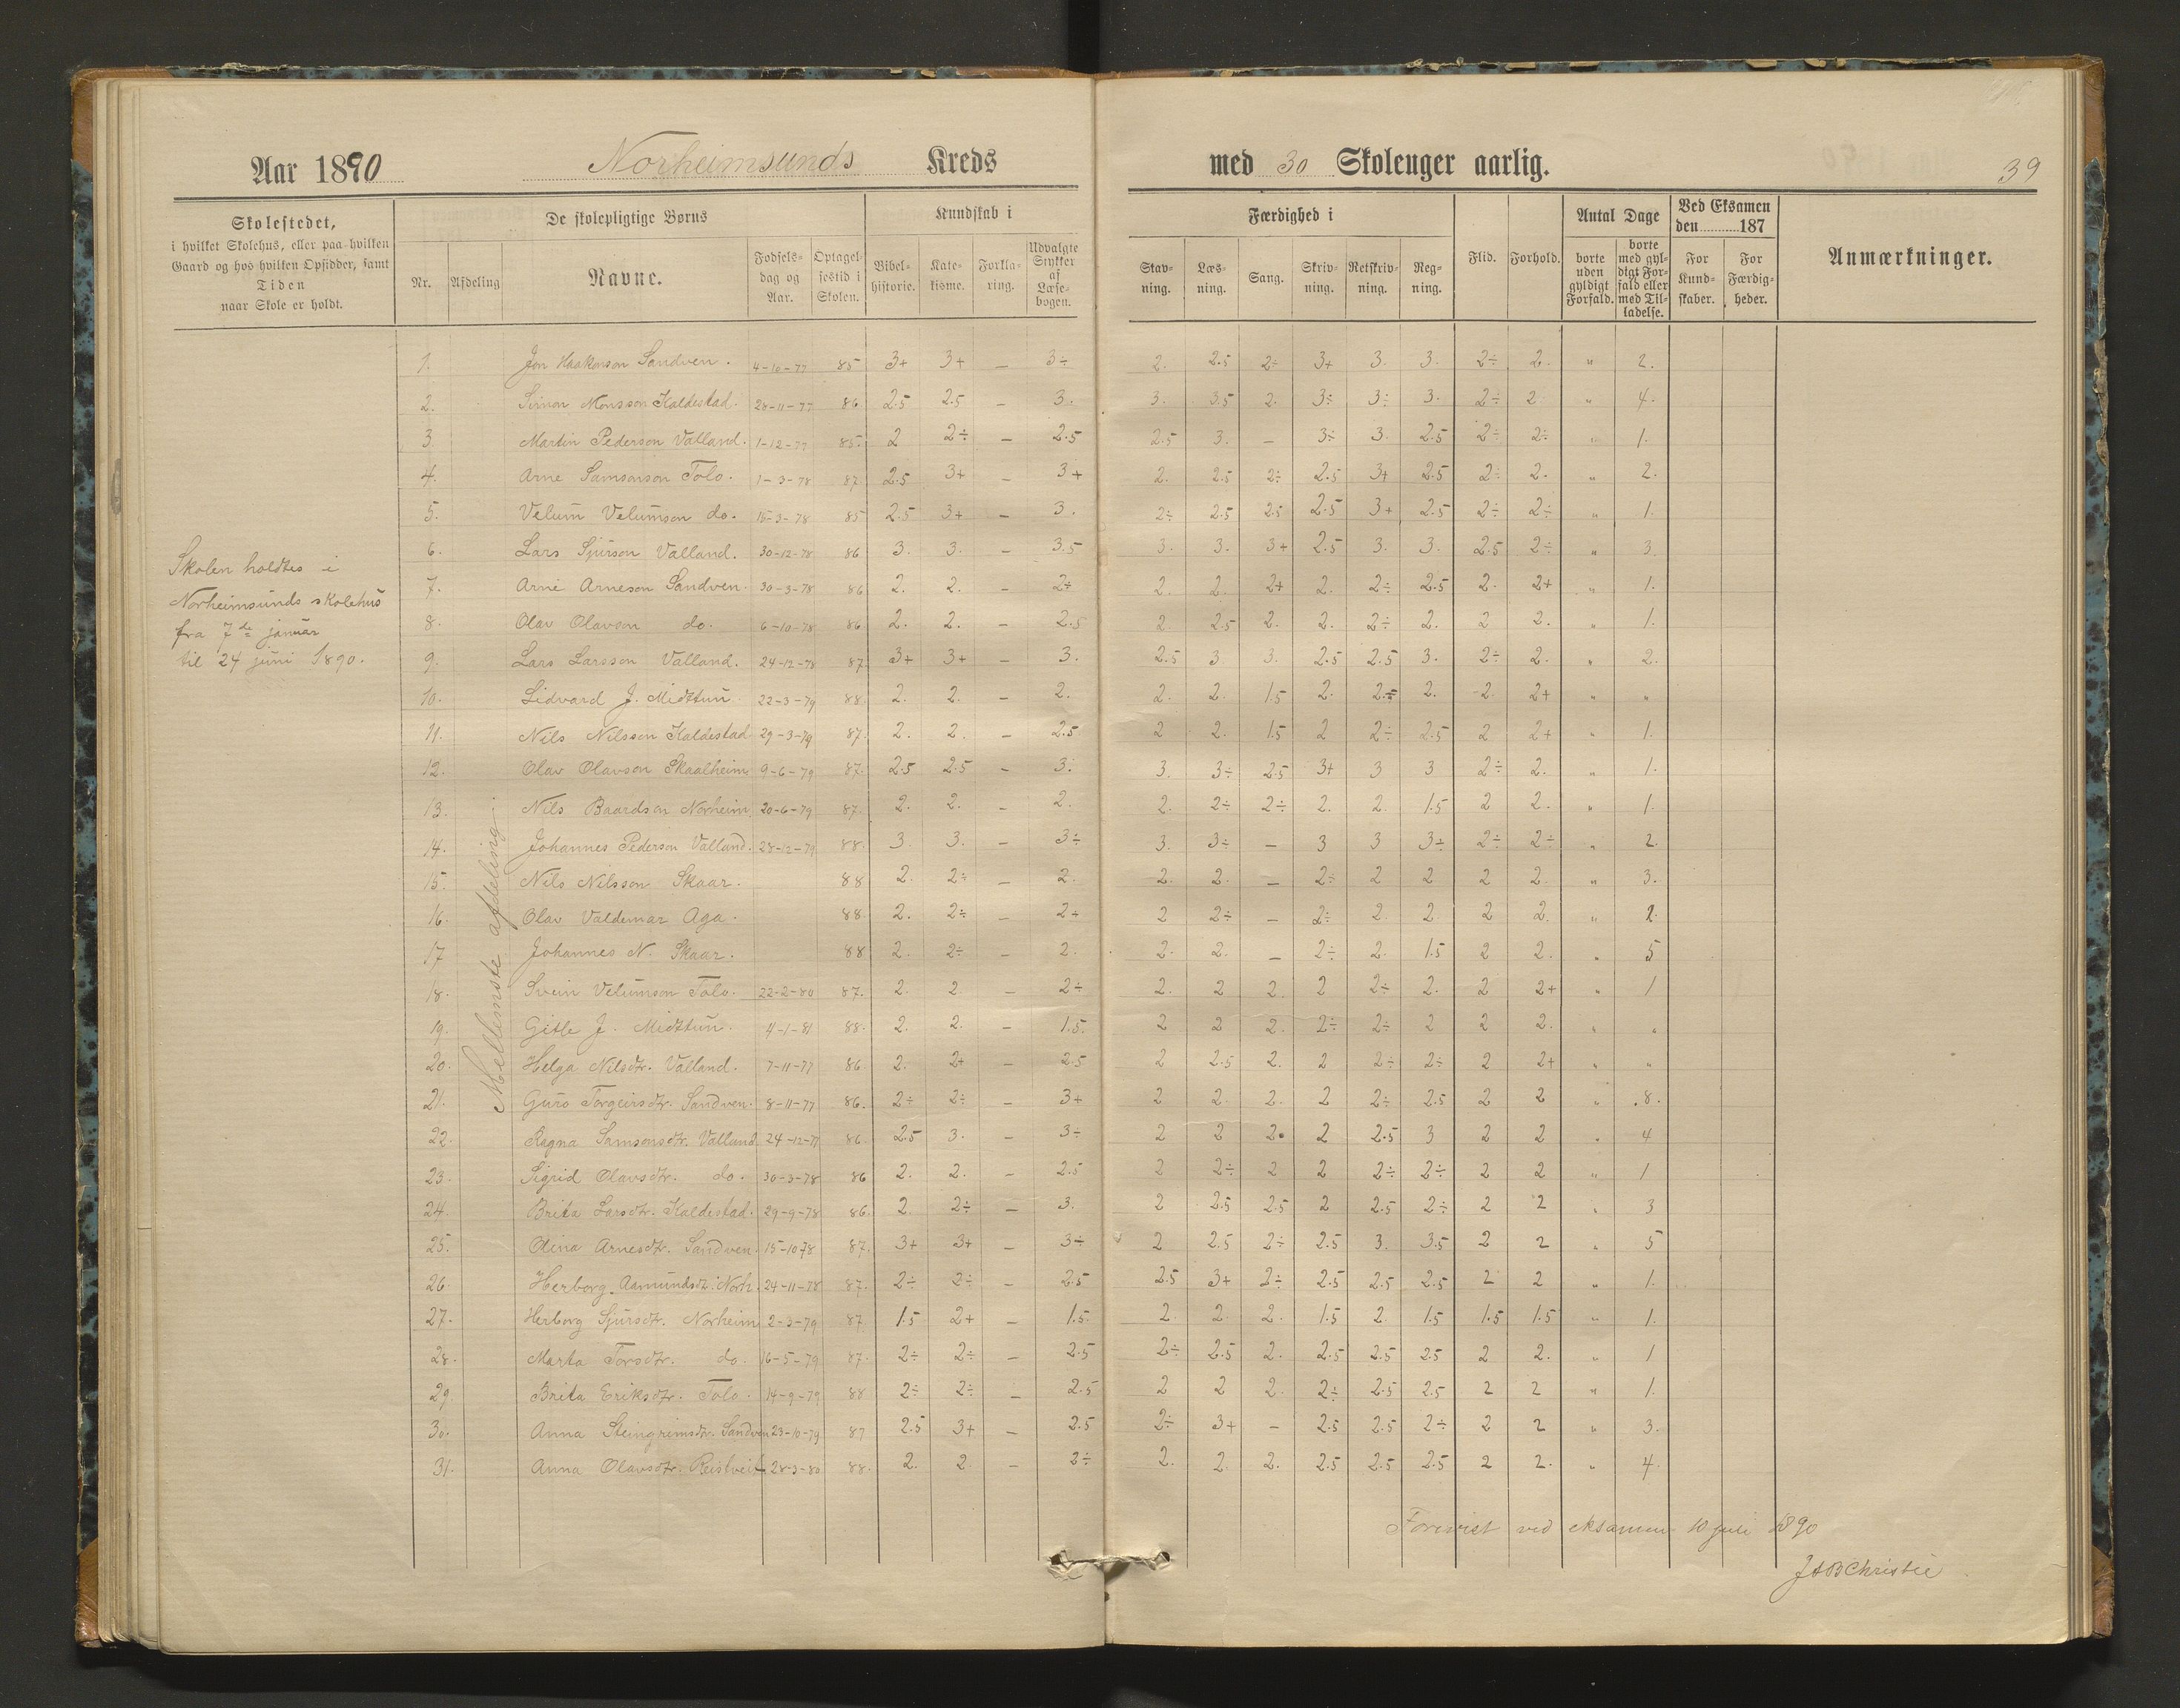 Aar 1890 Norheimsunds Kreds med 30 Skolenger aarlig. 39
Skolestedet,
i hvilket Skolehus, eller paa hvilken
Gaard og hos hvilken Opsidder, samt
Tiden
naar Skole er holdt.
De skolepligtige Børns
Nr. Afdeling Navne. Fødsels- dag og Aar. Optagel- sestid i Skolen.
Kundskab i
Bibel- historie. Kate- kisme. Forkla- ring. Udvalgte Stykker af Læse- bogen.
Færdighed i
Stav- ning. Læs- ning. Sang. Skriv- ning. Retskriv- ning. Reg- ning.
Flid. Forhold.
Antal Dage
borte uden gyldigt Forfald. borte med gyl- digt For- fald eller med Til- ladelse.
Ved Eksamen
den 187
For Kund- skaber. For Færdig- heder.
Anmærkninger.
Skolen holdtes i
Norheimsunds skolehus
fra 7de januar
til 24 juni 1890.
Mellemste afdeling.
1. Jon Haakonson Sandven. 4-10-77 85 3+ 3+ – 3÷ 2. 2.5 2÷ 3+ 3. 3. 2÷ 2. " 2.
2. Simon Monsson Kaldestad. 28-11-77 86 2.5 2.5 – 3. 3. 3.5 2. 3÷ 3÷ 3. 2÷ 2 " 4.
3. Martin Pederson Valland. 1-12-77 85. 2 2÷ – 2.5 2.5 3. – 3÷ 3. 2.5 2÷ 2÷ " 1.
4. Arne Samsonson Tolo. 1-3-78 87 2.5 3+ – 3+ 2. 2.5 2÷ 2.5 3+ 2.5 2÷ 2. " 2.
5. Velum Velumson do. 15-3-78 85 2.5 3+ – 3. 2÷ 2.5 2.5 2.5 3+ 2.5 2÷ 2÷ " 1.
6. Lars Sjurson Valland. 30-12-78 86 3. 3. – 3.5 3. 3. 3+ 2.5 3. 3. 2.5 2÷ " 3.
7. Arne Arneson Sandven. 30-3-78 86 2. 2. – 2÷ 2. 2. 2+ 2. 2÷ 2.5 2. 2+ " 1.
8. Olav Olavson do. 6-10-78 86 2. 2. – 2.5 2 2.5 2. 2. 2÷ 2. 2 2. " 1.
9. Lars Larsson Valland. 24-12-78 87. 3+ 3+ – 3. 2.5 3 3. 2.5 2.5 3. 2÷ 2. " 2.
10. Sidvard J. Midttun. 22-3-79 88 2. 2. – 2. 2. 2. 1.5 2. 2÷ 2. 2. 2+ " "
11. Nils Nilsson Kaldestad 29-3-79 87. 2. 2. – 2.5 2 2. 1.5 2 2÷ 2.5 2 2+ " 1.
12. Olav Olavson Skaalheim 9-6-79 87. 2.5 2.5 – 3. 3. 3÷ 2.5 3+ 3 3 2÷ 2. " 1.
13. Nils Baardson Norheim. 20-6-79 87. 2. 2. – 2. 2. 2÷ 2÷ 2. 2. 1.5 2 2. " 1.
14. Johannes Pederson Valland. 28-12-79 88. 3. 3. – 3÷ 3. 3÷ – 3 3 3÷ 2÷ 2÷ " 2.
15. Nils Nilsson Skaar. 88 2. 2÷ – 2. 2. 2. – 2÷ 2 2 2 2. " 3.
16. Olav Valdemar Aga. 88. 2. 2÷ – 2+ 2 2÷ – 2÷ 2 2 2 2. " 2.
17 Johannes N. Skaar. 88 2. 2÷ – 2. 2. 2. – 2÷ 2. 1.5 2 2. " 5
18. Svein Velumson Tolo. 22-2-80 87. 2. 2. – 2÷ 2. 2 2. 2 2÷ 2. 2 2+ " 1
19. Gitle J. Midttun. 4-1-81 88. 2. 2. – 1.5. 2 2 2. 2÷ 2÷ 2 2 2. " "
20. Helga Nilsdtr. Valland. 7-11-77 86 2. 2+ – 2.5 2 2.5 2. 2 2÷ 2÷ 2 2+ " "
21. Guro Torgeirsdtr. Sandven. 8-11-77 86. 2÷ 2÷ – 3+ 2 2. 2. 2 2÷ 2.5 2 2 " 8.
22. Ragna Samsonsdtr. Valland. 24-12-77 86. 2.5 3. – 3÷ 2 2 2. 2 2.5 3 2 2 " 4
23. Sigrid Olavsdtr. do. 30-3-78 86 2. 2. – 2.5 2 2÷ 2 2 2÷ 2÷ 2 2 " 1
24. Brita Larsdtr. Kaldestad. 29-9-78 86. 2. 2÷ – 3. 2 2.5 2.5 2 2.5 2÷ 2 2 " 3
25. Olina Arnesdtr. Sandven. 15-10-78 87. 3+ 3+ – 3÷ 2 2.5 2÷ 2.5 3. 3.5 2 2 " 5
26. Herborg Aamundsdtr. Norh. 24-11-78 87. 2÷ 2÷ – 2.5 2.5 3+ 2÷ 2.5 2.5 2.5 2 2 " 1.
27. Herborg Sjursdtr. Norheim 2-3-79 87 1.5 2+ – 1.5. 2. 2. 2. 1.5 2. 1.5 1.5 1.5 " 1.
28. Marta Torsdtr. do. 16-5-79 87. 2÷ 2÷ – 2.5 2÷ 2.5 2. 2.5 2.5 2.5 2 2. " 1
29. Brita Eriksdtr. Tolo. 14-9-79 88 2÷ 2÷ – 2.5 2 2 2. 2÷ 2.5 2.5 2 2 " 1.
30. Anna Steingrimsdtr. Sandven 23-10-79 87 2.5 3+ – 2.5 2÷ 3+ – 2.5 2.5 2÷ 2 2 " 3.
31. Anna Olavsdtr. 28-3-80 88. 2. 2. – 2÷ 2. 2. 2. 2.5 2.5 2.5 2 2. " 4.
Forevist ved eksamen 10 juli 1890
JAB Christie